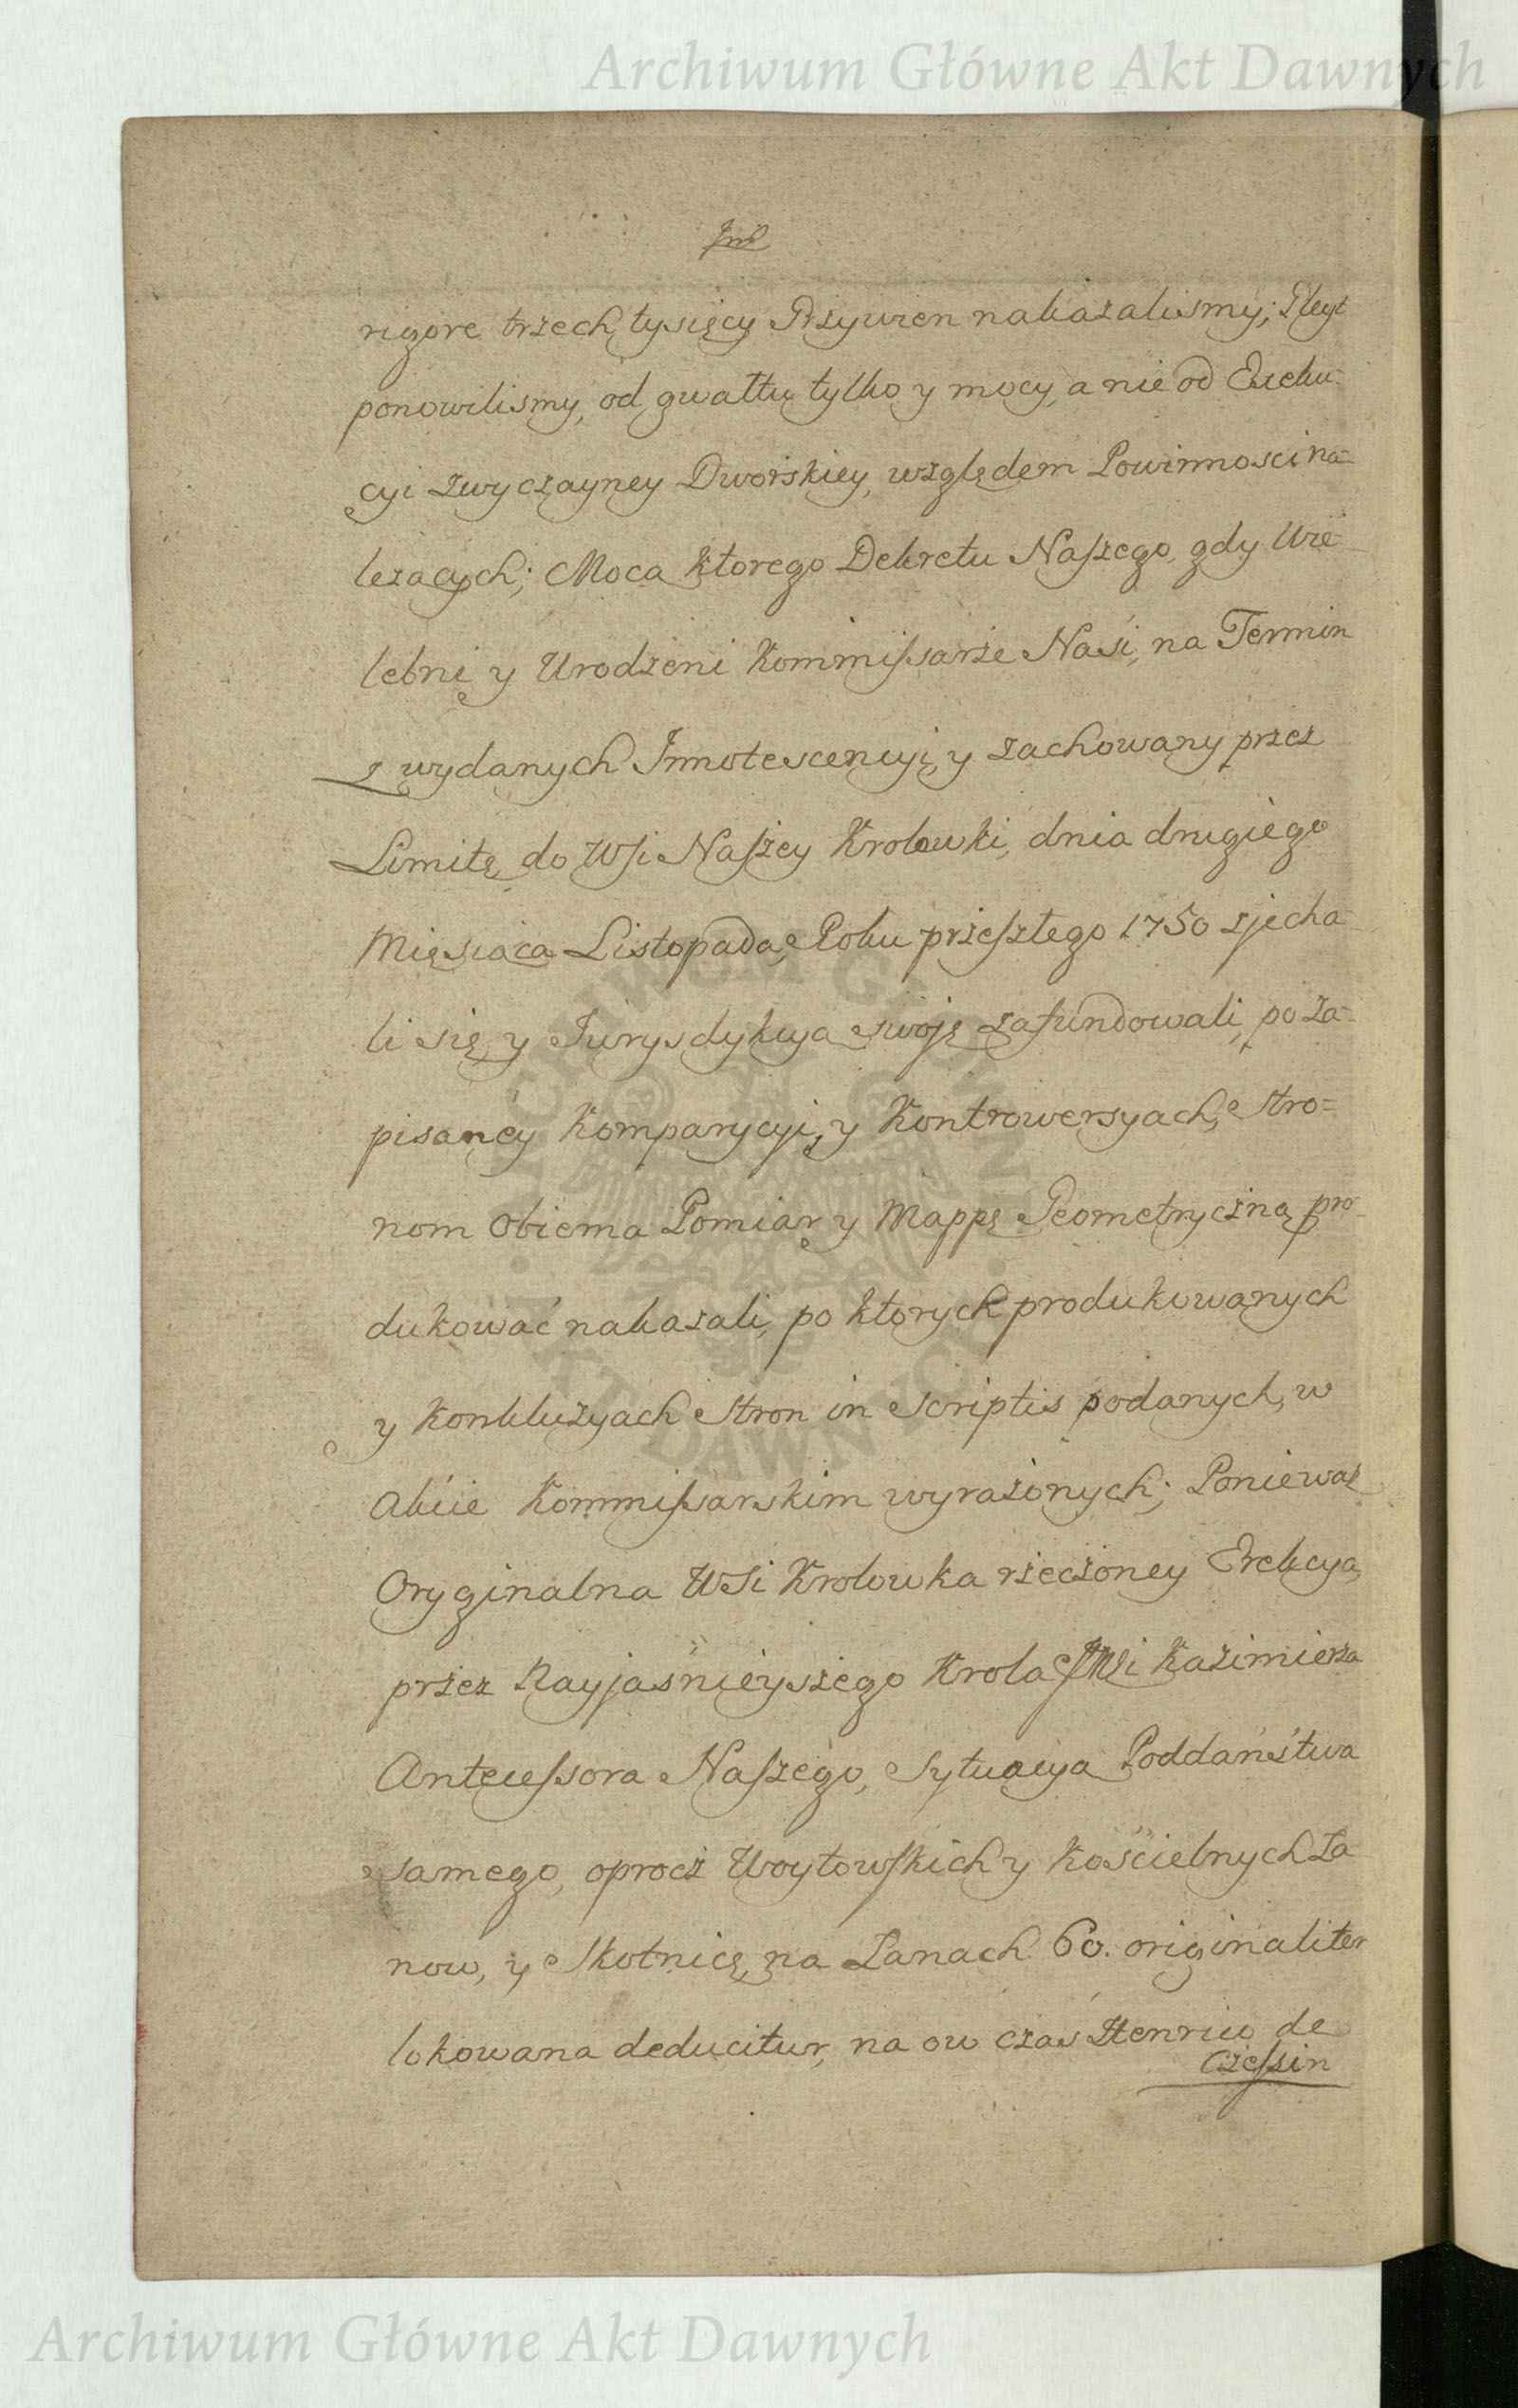 Archiwum Główne Akt Dawnych
rigore trzech tysięcy Grzywien nakazalismy; Gleyt
ponowilismy, od gwałtu tylko y mocy, a nie od Exeku-
cyi zwyczayney Dworskiey, względem Powinnosci na-
lezacych; Moca ktorego Dekretu Naszego, gdy Wie-
lebni y Urodzeni Kommissarze Nasi, na Termin
z wydanych Innotescencyi, y zachowany przez
Limitę, do Wsi Naszey Krolowki, dnia drugiego
Miesiąca Listopada, Roku przeszłego 1750 zjecha-
li się, y Jurysdykcya swoję zafundowali, po za-
pisaney Komparycyi, y Kontrowersyach, Stro-
nom obiema Pomiar y Mappę Geometryczną pro-
dukować nakazali, po ktorych produkowanych
y Konkluzyach Stron in Scriptis podanych, w
Akcie Kommissarskim wyrażonych; Ponieważ
Oryginalna Wsi Krolowka rzeczoney Erekcya,
przez Nayjaśnieyszego Krola Kazimierza
Antecessora Naszego, Sytuacya Poddaństwa
samego, oprocz Woytowskich y Kościelnych Ła-
now, y Skotnicę, na Łanach 60. originaliter
lokowana deducitur, na ow czas Henrico de
Czeszin
ARCHIWUM GŁÓWNE
AKT DAWNYCH
Archiwum Główne Akt Dawnych